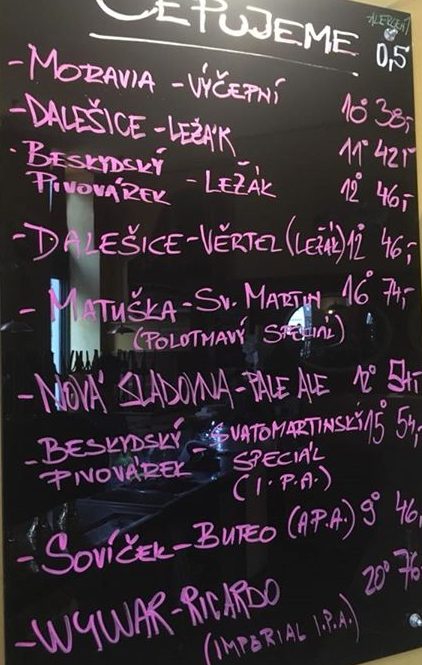 ČEPUJEME
ALERGENY
0,5
- MORAVIA - VÝČEPNÍ 10° 38,-
- DALEŠICE - LEŽÁK 11° 42,-
- BESKYDSKÝ
PIVOVÁREK - LEŽÁK 12° 46,-
- DALEŠICE - VĚRTEL (LEŽÁK) 12° 46,-
- MATUŠKA - SV. MARTIN 16° 74,-
(POLOTMAVÝ SPECIÁL)
- NOVÁ SLADOVNA - PALE ALE 12° 54,-
- BESKYDSKÝ - SVATOMARTINSKÝ 15° 54,-
PIVOVÁREK SPECIÁL
(I.P.A.)
- SOVÍČEK - BUTEO (A.P.A.) 9° 46,
- WYWAR - RICARDO 20° 76
(IMPERIAL I.P.A.)